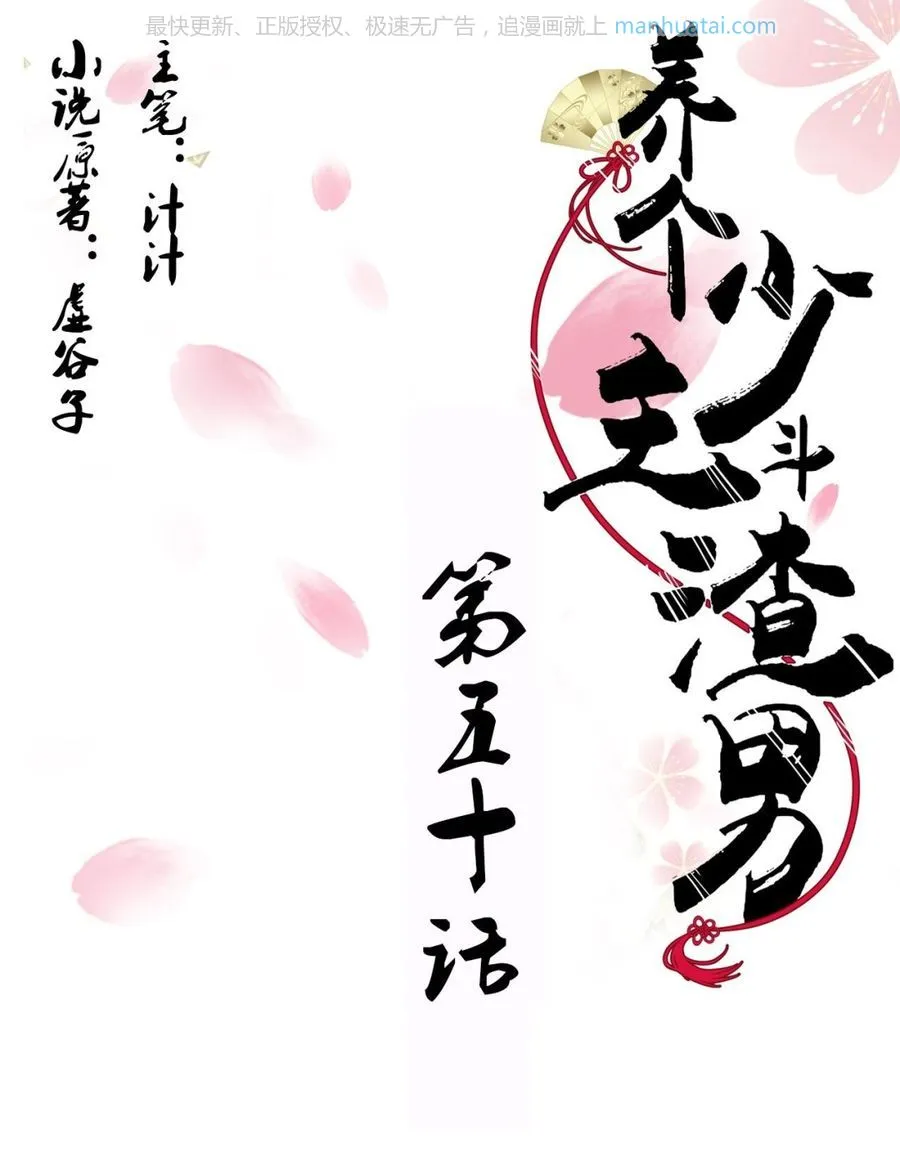 最快更新、正版授权、极速无广告，追漫画就上 manhuatai.com
养个少主斗渣男
第五十话
主笔：汁汁
小说原著：虚谷子